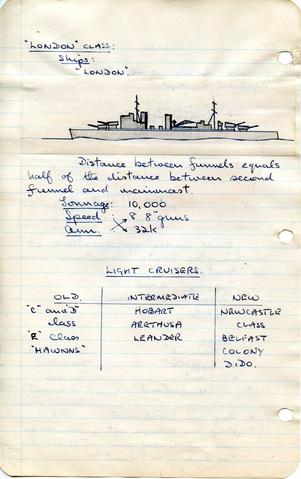 "LONDON" CLASS:
Ships:
"LONDON".
Distance between funnels equals
half of the distance between second
funnel and mainmast.
Tonnage: 10,000
Speed : 8 8" guns
Arm. : 32k
LIGHT CRUISERS.
OLD. INTERMEDIATE NEW
"C" and "D" HOBART NEWCASTLE
class ARETHUSA CLASS
"E" Class LEANDER BELFAST
"HAWKINS" COLONY
DIDO.